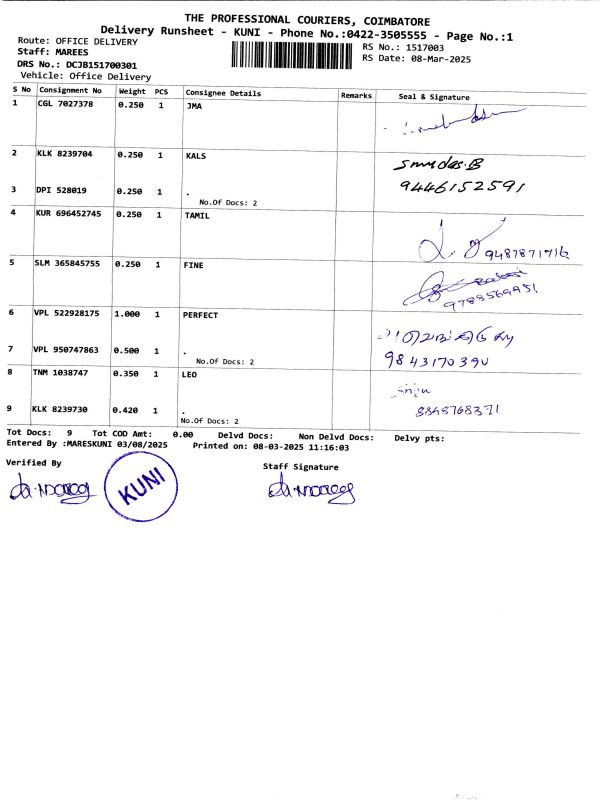 THE PROFESSIONAL COURIERS, COIMBATORE
Delivery Runsheet - KUNI - Phone No.:0422-3505555 - Page No.:1
Route: OFFICE DELIVERY
RS No.: 1517003
Staff: MAREES
RS Date: 08-Mar-2025
DRS No.: DCJB151700301
Vehicle: Office Delivery
S No Consignment No Weight PCS Consignee Details Remarks Seal & Signature
1 CGL 7027378 0.250 1 JMA
2 KLK 8239704 0.250 1 KALS
3 DPI 528019 0.250 1 . 9446152591
No.Of Docs: 2
4 KUR 696452745 0.250 1 TAMIL
5 SLM 365845755 0.250 1 FINE
9788569951
6 VPL 522928175 1.000 1 PERFECT
7 VPL 950747863 0.500 1 .
No.Of Docs: 2
8 TNM 1038747 0.350 1 LEO
9 KLK 8239730 0.420 1 . 8848768371
No.Of Docs: 2
Tot Docs: 9 Tot COD Amt: 0.00 Delvd Docs: Non Delvd Docs: Delvy pts:
Entered By :MARESKUNI 03/08/2025 Printed on: 08-03-2025 11:16:03
Verified By
Staff Signature
KUNI